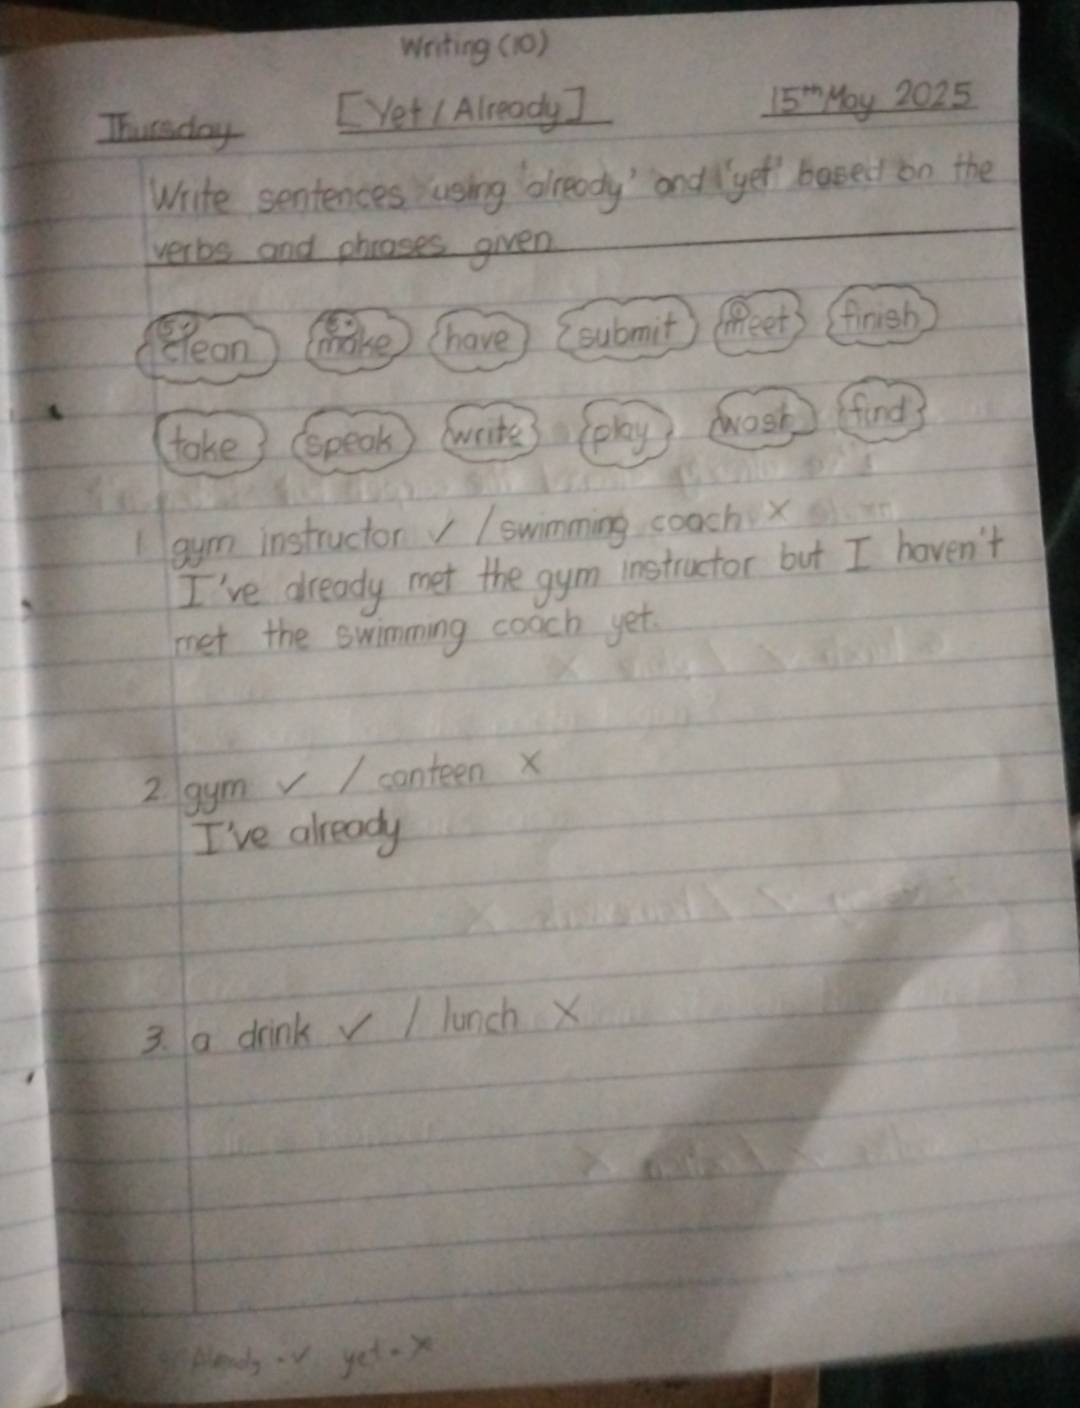 Writing (10)
Thursday [Yet / Already] 15th May 2025
Write sentences using 'already' and 'yet' based on the
verbs and phrases given
clean make have submit meet finish
take speak write play wash find
1. gym instructor ✓ / swimming coach X
I've already met the gym instructor but I haven't
met the swimming coach yet.
2. gym ✓ / canteen X
I've already
3. a drink ✓ / lunch X
Already - ✓ yet - X